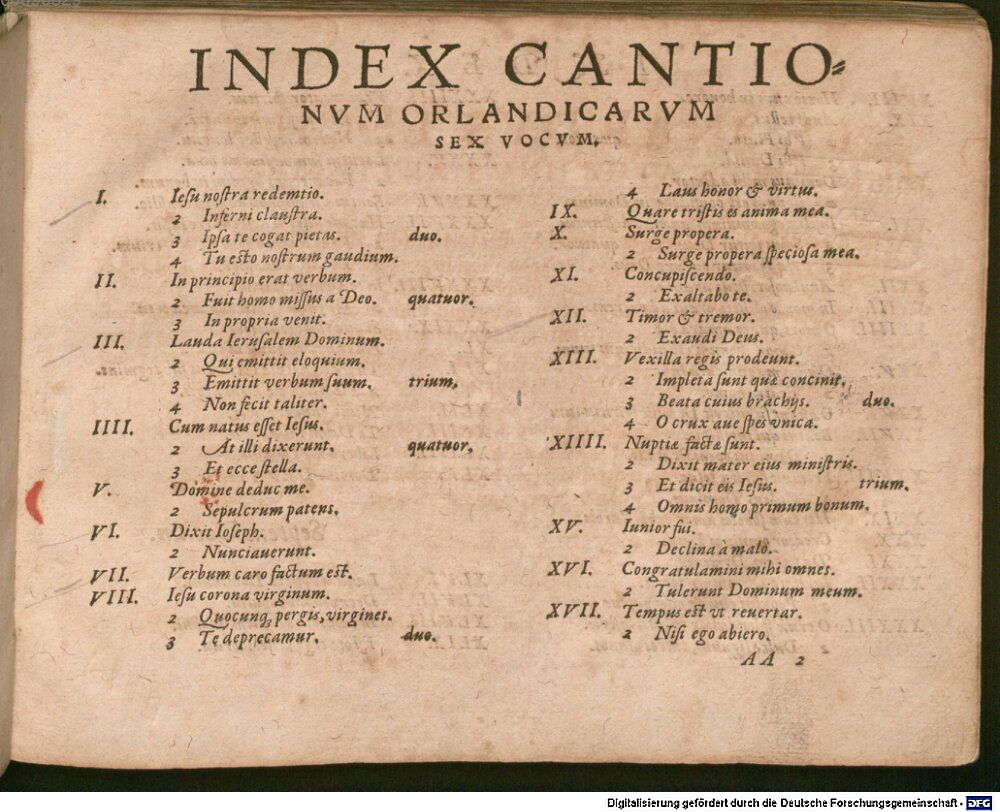 INDEX CANTIO=
NVM ORLANDICARVM
SEX VOCVM.
I. Iesu nostra redemtio.
2 Inferni claustra.
3 Ipsa te cogat pietas. duo.
4 Tu esto nostrum gaudium.
II. In principio erat verbum.
2 Fuit homo missus a Deo. quatuor.
3 In propria venit.
III. Lauda Ierusalem Dominum.
2 Qui emittit eloquium.
3 Emittit verbum suum. trium.
4 Non fecit taliter.
IIII. Cum natus esset Iesus.
2 At illi dixerunt. quatuor.
3 Et ecce stella.
V. Domine deduc me.
2 Sepulcrum patens.
VI. Dixit Ioseph.
2 Nunciauerunt.
VII. Verbum caro factum est.
VIII. Iesu corona virginum.
2 Quocunq; pergis, virgines.
3 Te deprecamur. duo.
4 Laus honor & virtus.
IX. Quare tristis es anima mea.
X. Surge propera.
2 Surge propera speciosa mea.
XI. Concupiscendo.
2 Exaltabo te.
XII. Timor & tremor.
2 Exaudi Deus.
XIII. Vexilla regis prodeunt.
2 Impleta sunt quæ concinit.
3 Beata cuius brachijs. duo.
4 O crux aue spes vnica.
XIIII. Nuptiæ factæ sunt.
2 Dixit mater eius ministris.
3 Et dicit eis Iesus. trium.
4 Omnis homo primum bonum.
XV. Iunior fui.
2 Declina a malo.
XVI. Congratulamini mihi omnes.
2 Tulerunt Dominum meum.
XVII. Tempus est vt reuertar.
2 Nisi ego abiero.
AA 2
Digitalisierung gefördert durch die Deutsche Forschungsgemeinschaft - DFG